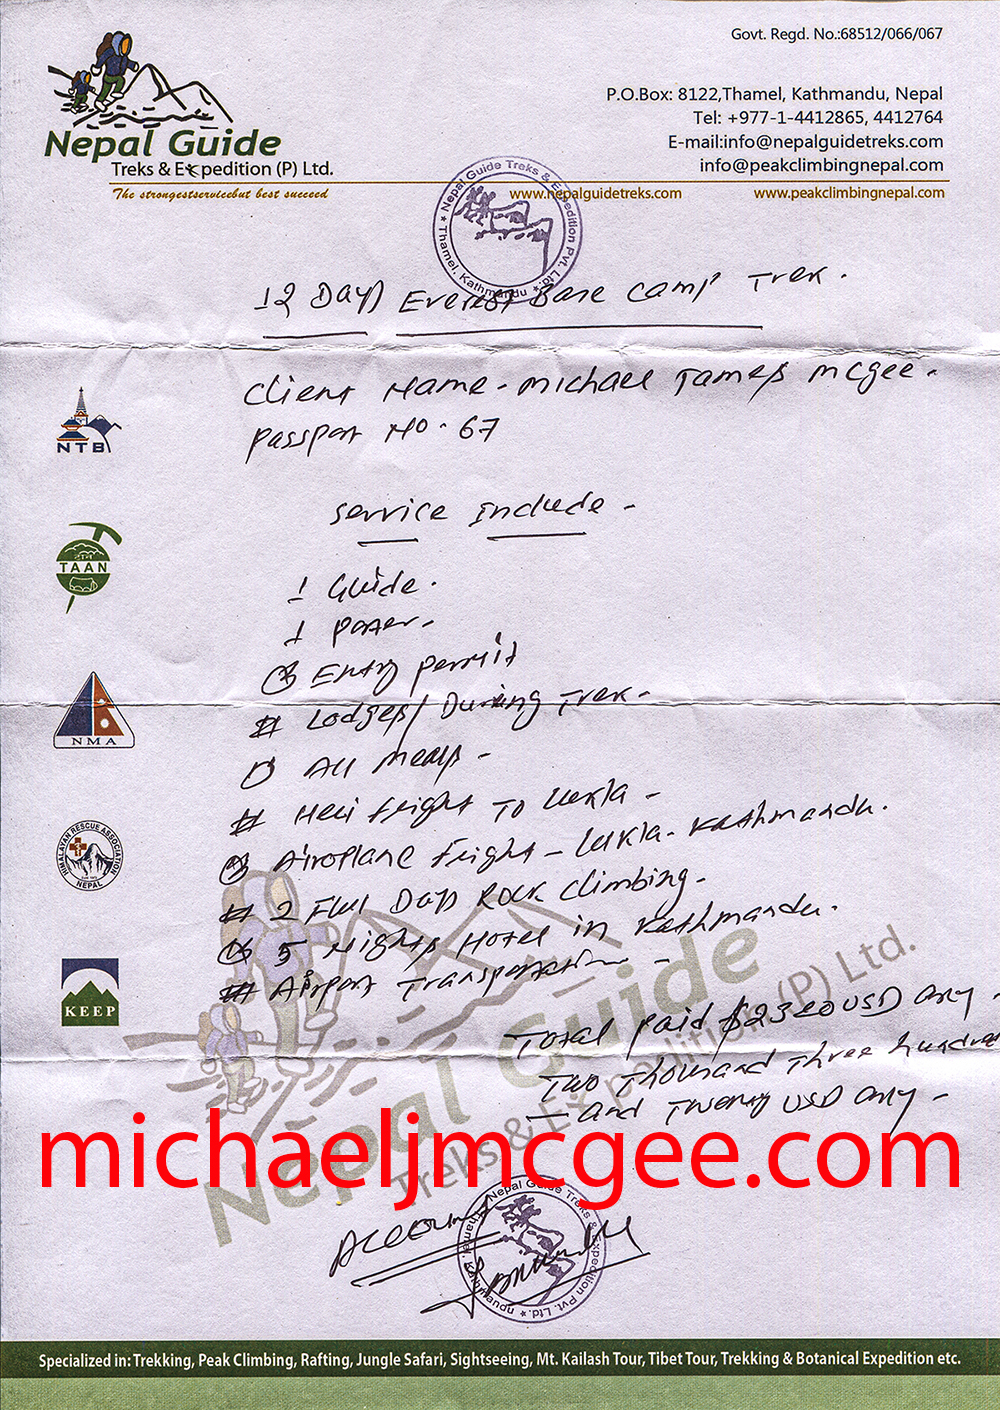 Govt. Regd. No.:68512/066/067
P.O.Box: 8122,Thamel, Kathmandu, Nepal
Tel: +977-1-4412865, 4412764
E-mail:info@nepalguidetreks.com
info@peakclimbingnepal.com
Nepal Guide
Treks & Expedition (P) Ltd.
The strongestservicebut best succeed
www.nepalguidetreks.com
www.peakclimbingnepal.com
Nepal Guide Treks & Expedition Pvt. Ltd.
Thamel, Kathmandu
12 Days Everest Base Camp Trek.
Client Name - Michael James McGee.
Passport No. 67
NTB
Service Include -
TAAN
1 Guide.
1 Porter.
Entry permit
# Lodges/ During Trek -
NMA
All meals -
# Heli flight To Lukla -
Airoplane flight - Lukla - Kathmandu.
HIMALAYAN RESCUE ASSOCIATION
NEPAL
# 2 Full Days Rock climbing.
5 Nights Hotel in Kathmandu.
# Airport Transportation -
KEEP
Total paid $2320 USD only -
Two Thousand Three hundred
- and Twenty USD only -
Nepal Guide
Treks & Expedition (P) Ltd.
michaeljmcgee.com
Account
Nepal Guide Treks & Expedition Pvt. Ltd.
Thamel, Kathmandu
Specialized in: Trekking, Peak Climbing, Rafting, Jungle Safari, Sightseeing, Mt. Kailash Tour, Tibet Tour, Trekking & Botanical Expedition etc.